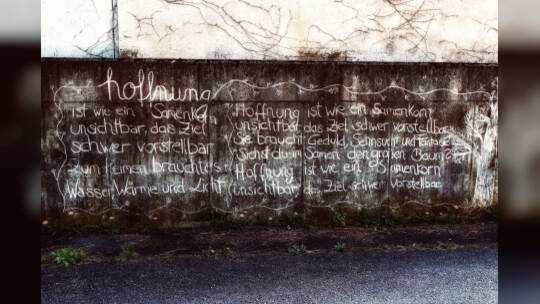 hoffnung
ist wie ein Samenkorn
unsichtbar, das Ziel
schwer vorstellbar
zum Keimen braucht's
Wasser Wärme und Licht
Hoffnung ist wie ein Samenkorn
unsichtbar, das Ziel schwer vorstellbar
Sie braucht Geduld, Sehnsucht und Fantasie
Siehst du im Samen den großen Baum?
Hoffnung ist wie ein Samenkorn
unsichtbar das Ziel schwer vorstellbar